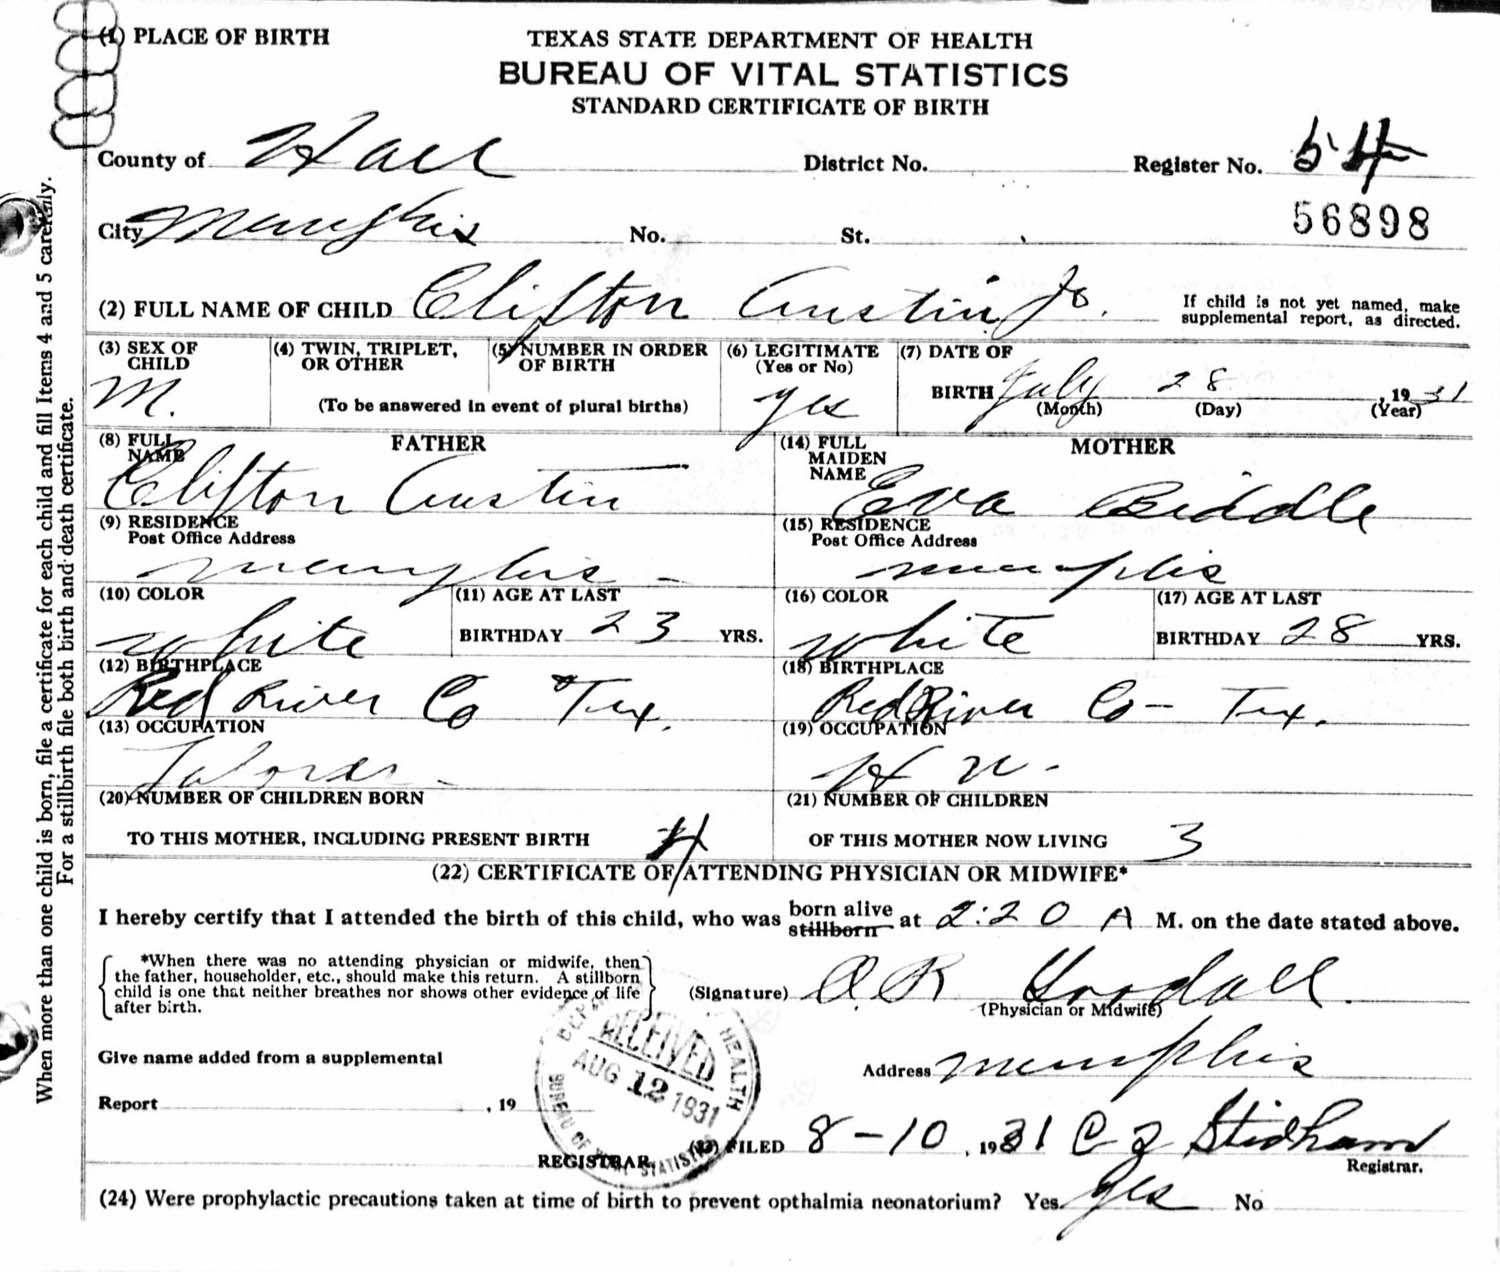 (1) PLACE OF BIRTH
TEXAS STATE DEPARTMENT OF HEALTH
BUREAU OF VITAL STATISTICS
STANDARD CERTIFICATE OF BIRTH
County of Hall District No. Register No. 54
56898
City Memphis No. St.
(2) FULL NAME OF CHILD Clifton Austin Jr. If child is not yet named, make
supplemental report, as directed.
(3) SEX OF CHILD M.
(4) TWIN, TRIPLET, OR OTHER
(5) NUMBER IN ORDER OF BIRTH
(To be answered in event of plural births)
(6) LEGITIMATE (Yes or No) yes
(7) DATE OF BIRTH July 28, 1931
(Month) (Day) (Year)
(8) FULL NAME FATHER
Clifton Austin
(14) FULL MAIDEN NAME MOTHER
Eva Biddle
(9) RESIDENCE
Post Office Address
Memphis -
(15) RESIDENCE
Post Office Address
Memphis
(10) COLOR
White
(11) AGE AT LAST
BIRTHDAY 23 YRS.
(16) COLOR
White
(17) AGE AT LAST
BIRTHDAY 28 YRS.
(12) BIRTHPLACE
Red River Co Tex.
(18) BIRTHPLACE
Red River Co - Tex.
(13) OCCUPATION
Laborer -
(19) OCCUPATION
H W -
(20) NUMBER OF CHILDREN BORN
TO THIS MOTHER, INCLUDING PRESENT BIRTH 4
(21) NUMBER OF CHILDREN
OF THIS MOTHER NOW LIVING 3
(22) CERTIFICATE OF ATTENDING PHYSICIAN OR MIDWIFE*
I hereby certify that I attended the birth of this child, who was born alive stillborn at 2:20 A M. on the date stated above.
*When there was no attending physician or midwife, then
the father, householder, etc., should make this return. A stillborn
child is one that neither breathes nor shows other evidence of life
after birth.
(Signature) O R Goodall
(Physician or Midwife)
Give name added from a supplemental
Address Memphis
Report , 19
DEPT. HEALTH
RECEIVED
AUG 12 1931
BUREAU OF VITAL STATISTICS
REGISTRAR.
(23) FILED 8-10, 1931 C Z Stidham
Registrar.
(24) Were prophylactic precautions taken at time of birth to prevent opthalmia neonatorium? Yes yes No
When more than one child is born, file a certificate for each child and fill Items 4 and 5 carefully.
For a stillbirth file both birth and death certificate.